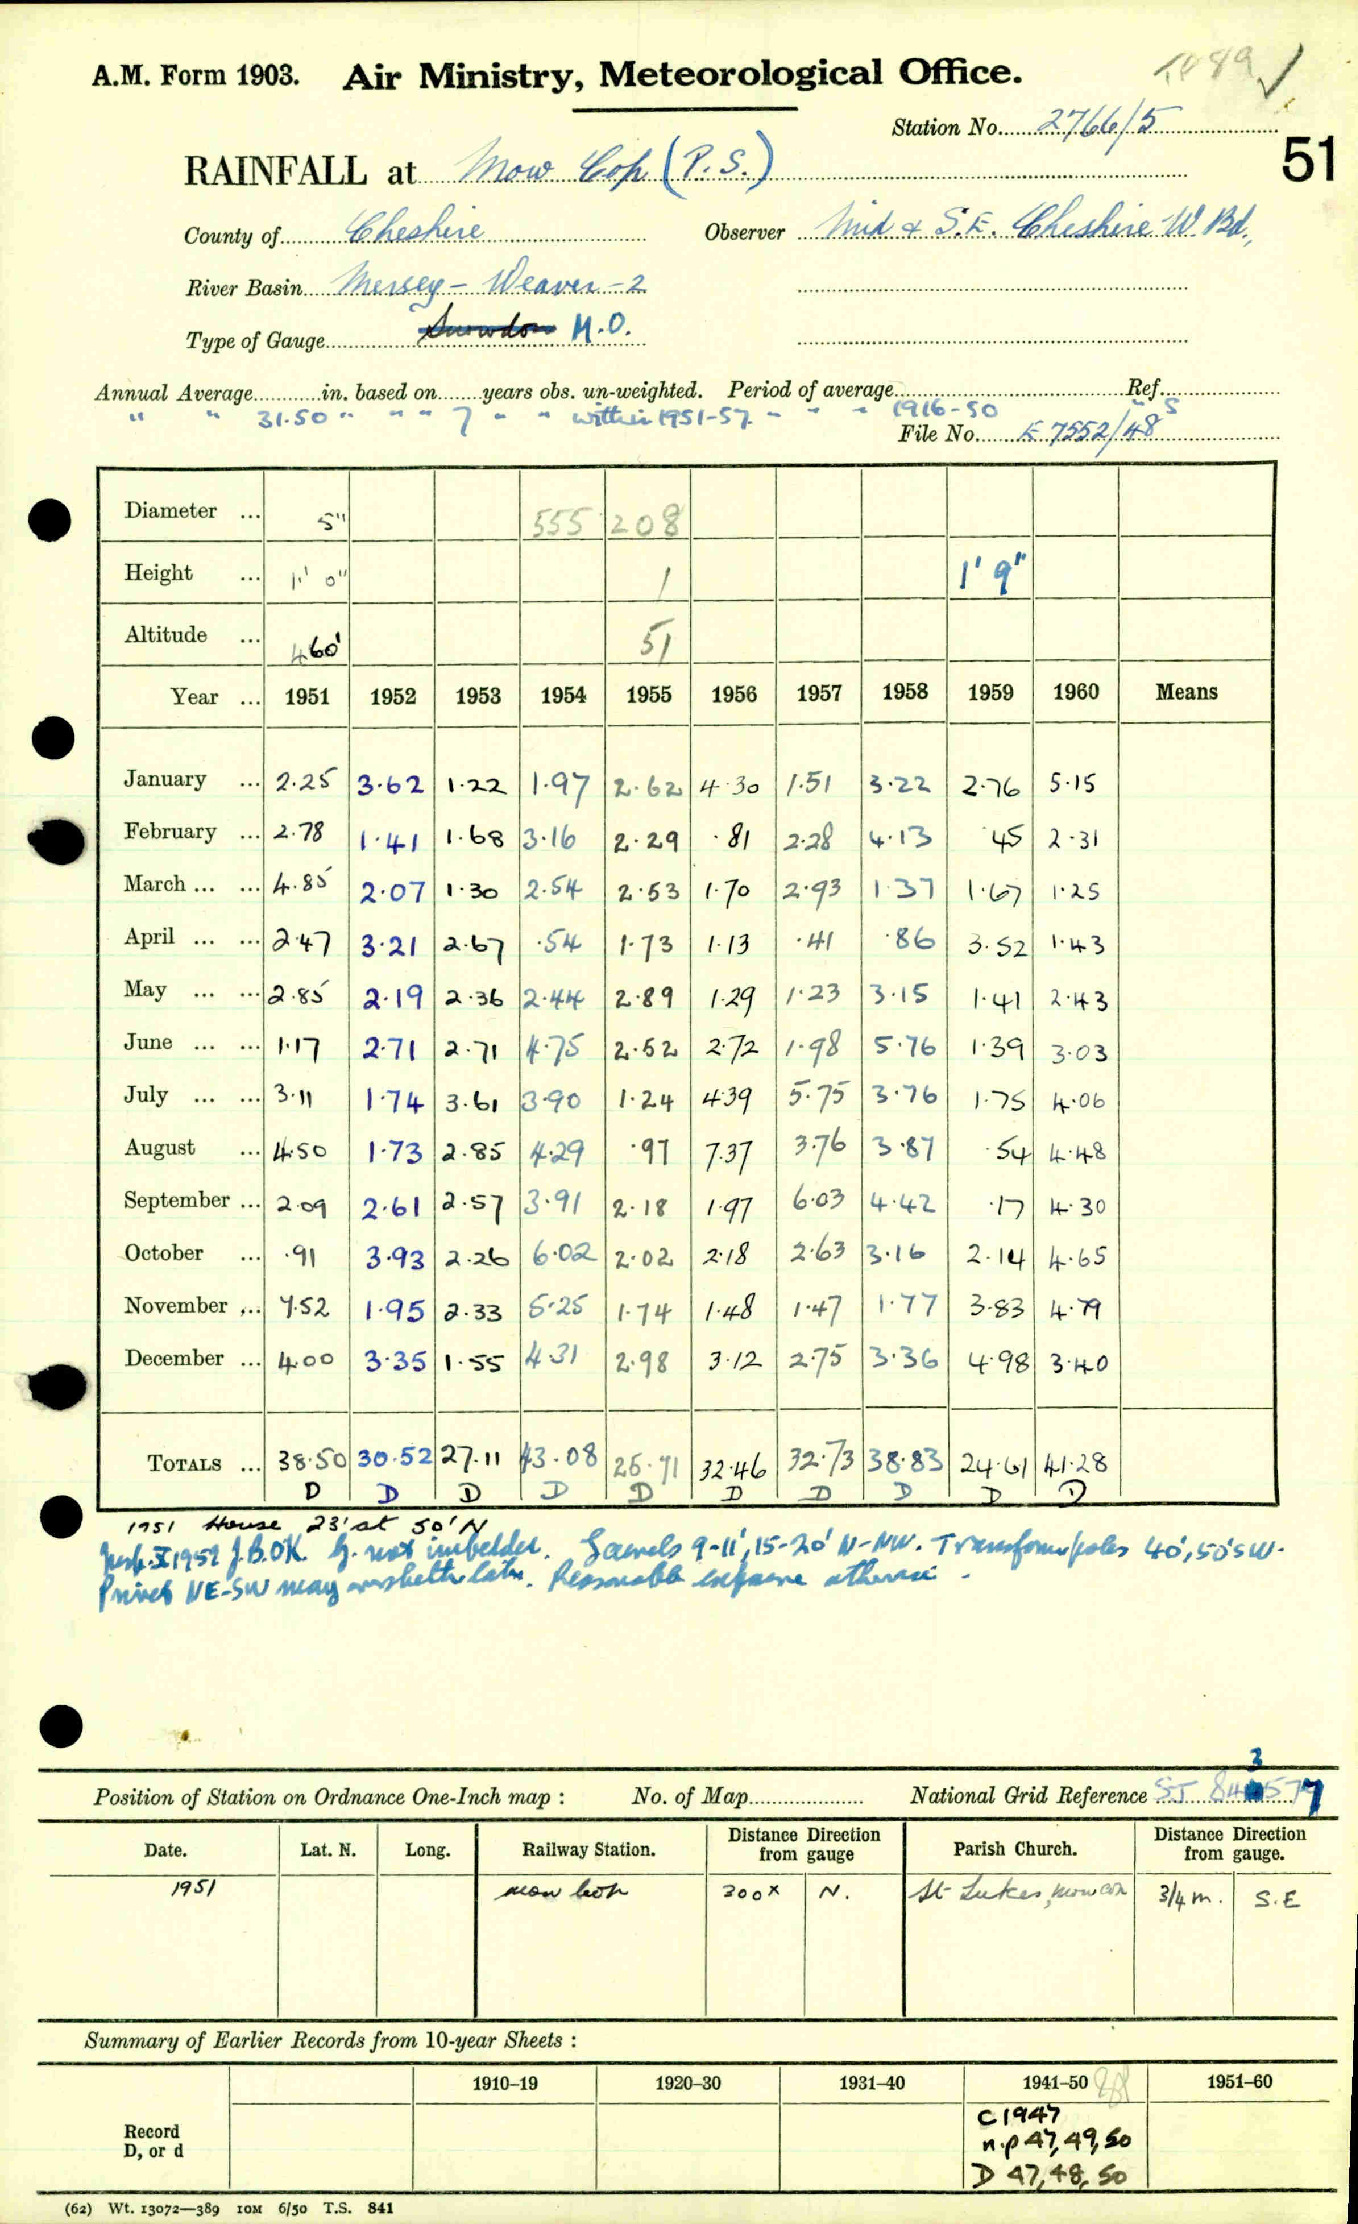 T089 ✓
A.M. Form 1903. Air Ministry, Meteorological Office.
Station No. 2766/5
51
RAINFALL at Mow Cop (P.S.)
County of Cheshire Observer Mid & S.E. Cheshire W. Bd.,
River Basin Mersey - Weaver - 2
Type of Gauge Snowdon M.O.
Annual Average in. based on years obs. un-weighted. Period of average Ref.
" " 31.50 " " " 7 " " within 1951-57 " " " 1916-50 " S
File No. E 7552/48
Diameter ... 5" 555 208
Height ... 1' 0" 1 1' 9"
Altitude ... 460' 51
Year ... 1951 1952 1953 1954 1955 1956 1957 1958 1959 1960 Means
January ... 2.25 3.62 1.22 1.97 2.62 4.30 1.51 3.22 2.76 5.15
February ... 2.78 1.41 1.68 3.16 2.29 .81 2.28 4.13 .45 2.31
March ... ... 4.85 2.07 1.30 2.54 2.53 1.70 2.93 1.37 1.67 1.25
April ... ... 2.47 3.21 2.67 .54 1.73 1.13 .41 .86 3.52 1.43
May ... ... 2.85 2.19 2.36 2.44 2.89 1.29 1.23 3.15 1.41 2.43
June ... ... 1.17 2.71 2.71 4.75 2.52 2.72 1.98 5.76 1.39 3.03
July ... ... 3.11 1.74 3.61 3.90 1.24 4.39 5.75 3.76 1.75 4.06
August ... 4.50 1.73 2.85 4.29 .97 7.37 3.76 3.87 .54 4.48
September ... 2.09 2.61 2.57 3.91 2.18 1.97 6.03 4.42 .17 4.30
October ... .91 3.93 2.26 6.02 2.02 2.18 2.63 3.16 2.14 4.65
November ... 7.52 1.95 2.33 5.25 1.74 1.48 1.47 1.77 3.83 4.79
December ... 4.00 3.35 1.55 4.31 2.98 3.12 2.75 3.36 4.98 3.40
TOTALS ... 38.50 30.52 27.11 43.08 25.71 32.46 32.73 38.83 24.61 41.28
D D D D D D D D D D
1951 House 23' at 50' N
Insp. X 1959 J.B. OK. G. not imbedded. Laurels 9-11', 15-20' N-NW. Transform poles 40', 50' SW.
Privet NE-SW may overshelter later. Reasonable exposure otherwise.
3
Position of Station on Ordnance One-Inch map : No. of Map National Grid Reference SJ 84 57 7
Date. Lat. N. Long. Railway Station. Distance from Direction gauge Parish Church. Distance from Direction gauge.
1951 Mow Cop 300x N. St Lukes, Mow Cop 3/4 m. S.E
Summary of Earlier Records from 10-year Sheets :
1910–19 1920–30 1931–40 1941–50 1951–60
Record
D, or d
C 1947
n.p 47, 49, 50
D 47, 48, 50
(62) Wt. 13072—389 IOM 6/50 T.S. 841